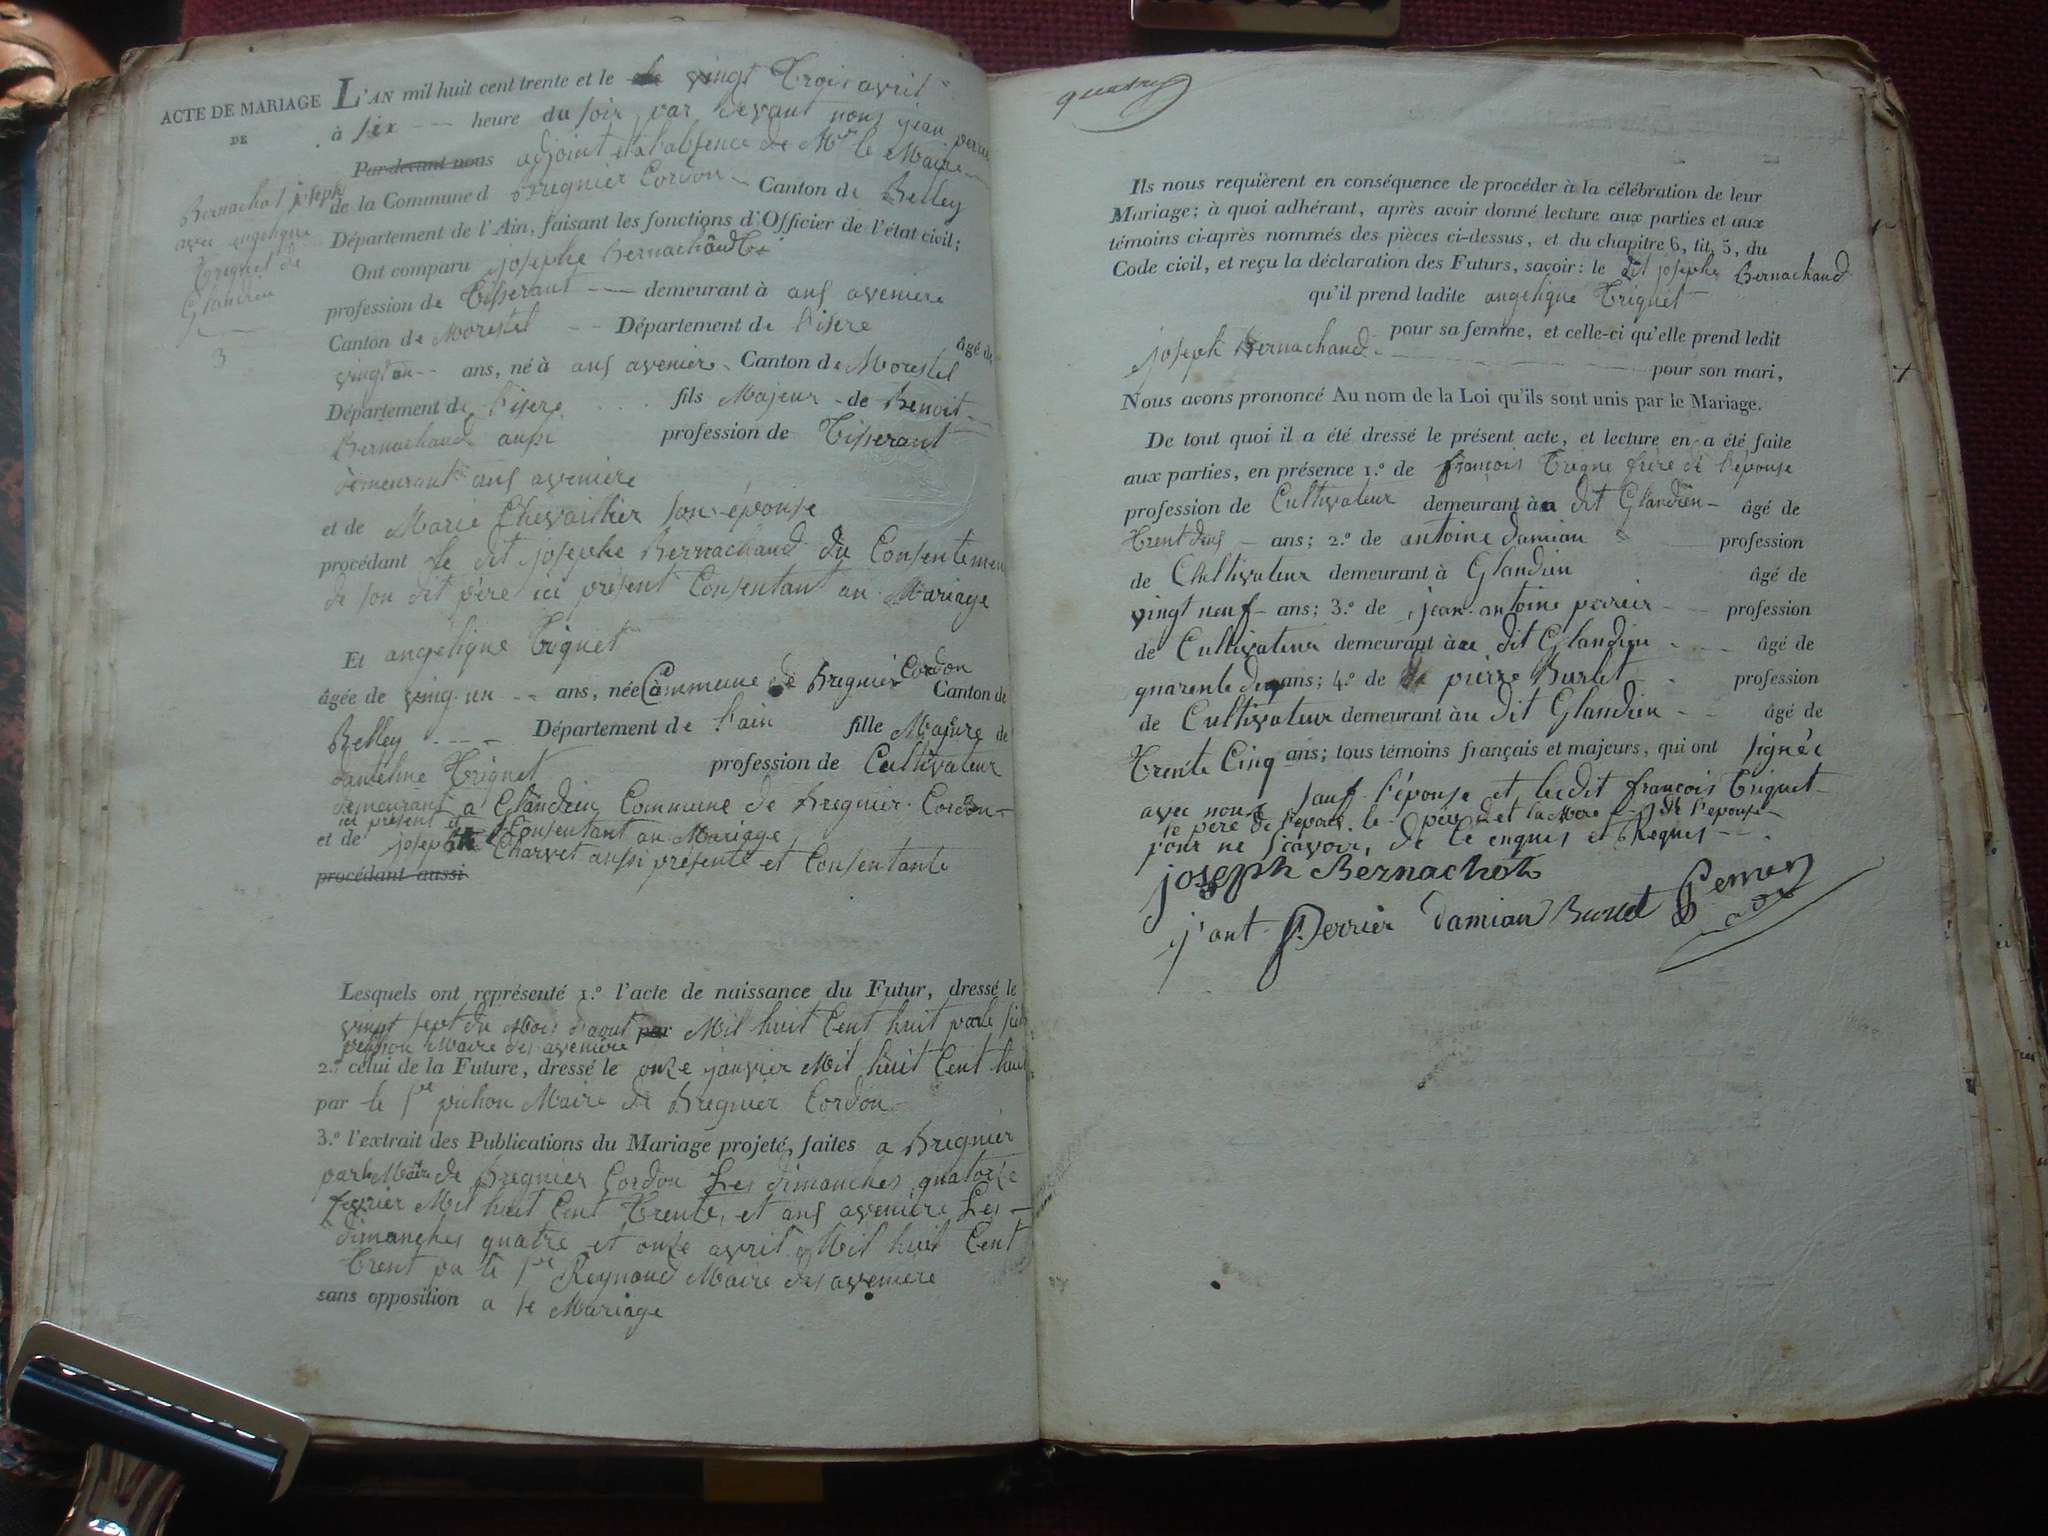 ACTE DE MARIAGE
DE
Bernachot joseph
avec angelique
Triguet de
Glandieu
3
L'AN mil huit cent trente et le vingt Trois avril
à six heure du soir par devant nous jean
Par-devant nous adjoint et a l'absence de Mr le Maire
de la Commune d Bregnier Cordon Canton de Belley
Département de l'Ain, faisant les fonctions d'Officier de l'état civil;
Ont comparu josephe Bernachaud
profession de Tisserant demeurant à aux aveniere
Canton de Morestel Département de l'isere
âgé de
vingt un ans, né à aux aveniere Canton de Morestel
Département de l'isere fils Majeur de Benoit
Bernachaud aussi profession de Tisserant
demeurant aux aveniere
et de Marie Chevaillier son épouse
procédant le dit josephe Bernachaud du Consentement
de son dit père ici présent Consentant au Mariage
Et angelique Triguet
âgée de vingt un ans, née Commune de Bregnier Cordon Canton de
Belley Département de l'ain fille Majeure de
Triguet profession de Cultivateur
demeurant a Glandieu Commune de Bregnier Cordon
ici présent et Consentant au Mariage
et de josephte Charvet aussi présente et Consentante
procédant aussi
Lesquels ont représenté 1.º l'acte de naissance du Futur, dressé le
vingt sept du Mois d'aout par Mil huit Cent huit par le
Maire des aveniere
2.º celui de la Future, dressé le onze janvier Mil huit Cent huit
par le Sr pichon Maire de Bregnier Cordon
3.º l'extrait des Publications du Mariage projeté, faites a Bregnier
par le Maire de Bregnier Cordon Les dimanches quatorze
fevrier Mil huit Cent Trente, et aux aveniere Les
dimanches quatre et onze avril Mil huit Cent
Trent par le Sr Reynaud Maire des aveniere
sans opposition a se Mariage
quatre
Ils nous requièrent en conséquence de procéder à la célébration de leur
Mariage; à quoi adhérant, après avoir donné lecture aux parties et aux
témoins ci-après nommés des pièces ci-dessus, et du chapitre 6, tit. 5, du
Code civil, et reçu la déclaration des Futurs, savoir: le dit josephe Bernachaud
qu'il prend ladite angelique Triguet
pour sa femme, et celle-ci qu'elle prend ledit
joseph Bernachaud
pour son mari,
Nous avons prononcé Au nom de la Loi qu'ils sont unis par le Mariage.
De tout quoi il a été dressé le présent acte, et lecture en a été faite
aux parties, en présence 1.º de françois Trigne frère de l'épouse
profession de Cultivateur demeurant à a dit Glandieu âgé de
Trent deux ans; 2.º de antoine damian profession
de Cultivateur demeurant à Glandieu âgé de
vingt neuf ans; 3.º de jean antoine perrier profession
de Cultivateur demeurant à au dit Glandieu âgé de
quarente deux ans; 4.º de pierre Burlet profession
de Cultivateur demeurant à u dit Glandieu âgé de
Trente Cinq ans; tous témoins français et majeurs, qui ont signée
avec nous sauf l'épouse et ledit françois Triguet
le père de l'epoux le père et la Mere de l'epouse
pour ne sçavoir, de ce enquis et Requis
joseph Bernachot
j ant Perrier damian Burlet